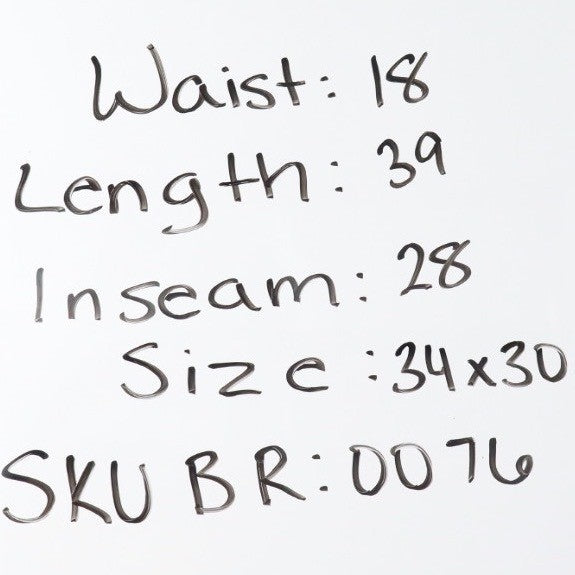 Waist: 18
Length: 39
Inseam: 28
Size: 34x30
SKU BR: 0076